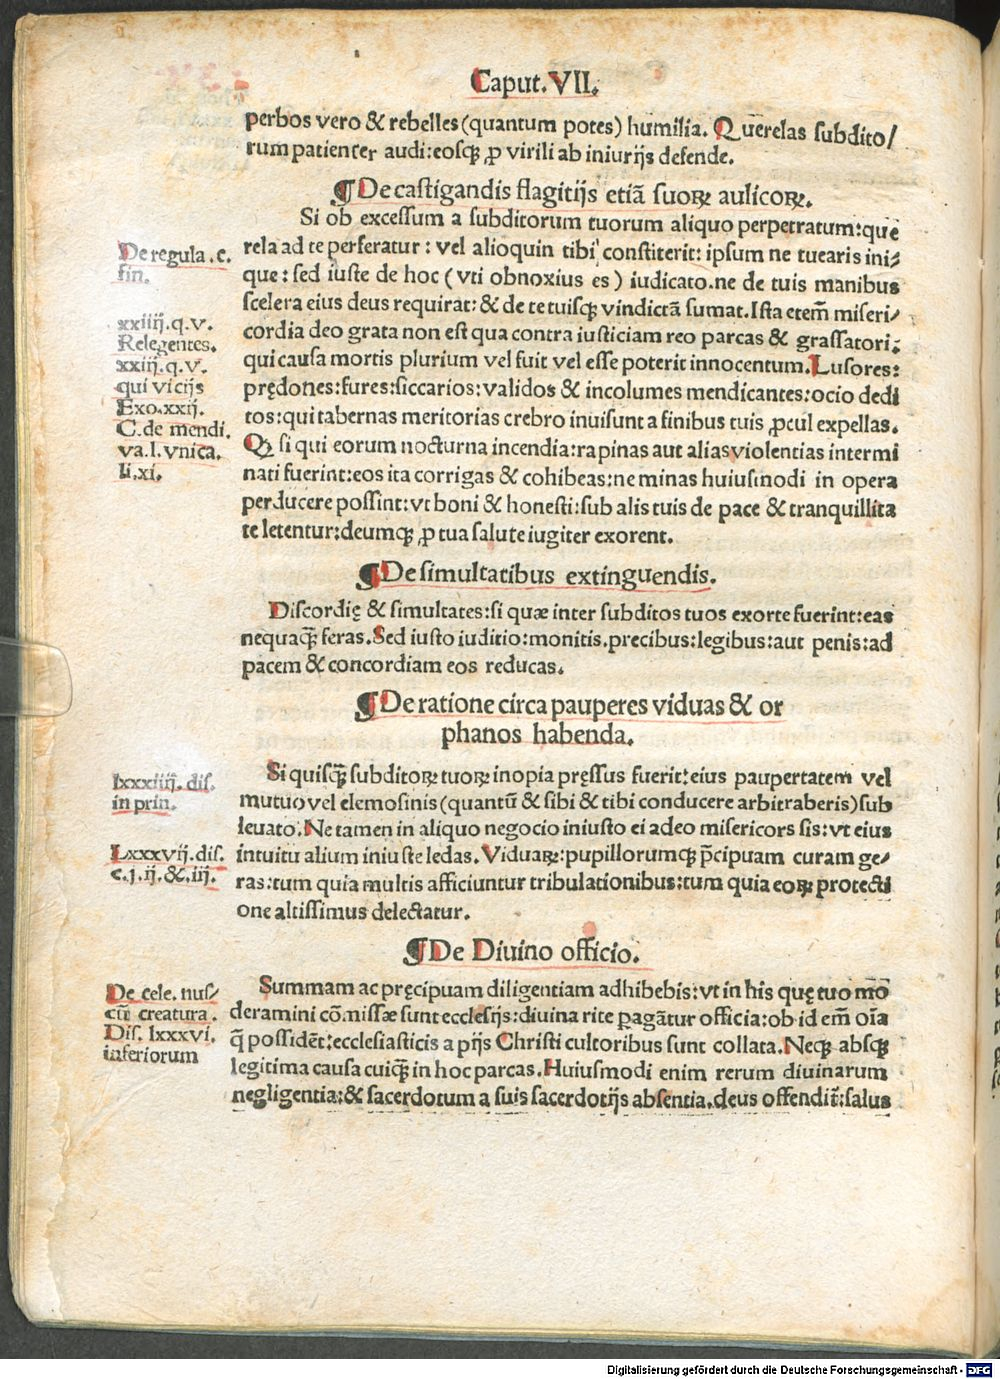 Caput.VII.
perbos vero & rebelles (quantum potes) humilia. Querelas subdito/
rum patienter audi: eosqꝫ ꝓ virili ab iniurijs defende.
¶ De castigandis flagitijs etiā suoꝝ aulicoꝝ.
Si ob excessum a subditorum tuorum aliquo perpetratum: que
rela ad te perferatur: vel alioquin tibi constiterit: ipsum ne tuearis ini/
que: sed iuste de hoc (vti obnoxius es) iudicato. ne de tuis manibus
scelera eius deus requirat: & de te tuisqꝫ vindictā sumat. Ista etem̄ miseri/
cordia deo grata non est qua contra iusticiam reo parcas & grassatori;
qui causa mortis plurium vel fuit vel esse poterit innocentum. Lusores:
prędones: fures: siccarios: validos & incolumes mendicantes: ocio dedi
tos: qui tabernas meritorias crebro inuisunt a finibus tuis ꝓcul expellas.
Qꝫ si qui eorum nocturna incendia: rapinas aut alias violentias intermi
nati fuerint: eos ita corrigas & cohibeas: ne minas huiusmodi in opera
perducere possint: vt boni & honesti: sub alis tuis de pace & tranquillita
te letentur: deumqꝫ ꝓ tua salute iugiter exorent.
De regula. c.
fin.
xxiiij. q. v.
Relegentes.
xxiij. q. v.
qui vicijs
Exo. xxij.
C. de mendi.
va. l. vnica.
li. xi.
¶ De simultatibus extinguendis.
Discordię & simultates: si quæ inter subditos tuos exorte fuerint: eas
nequaqꝫ feras. Sed iusto iuditio: monitis. precibus: legibus: aut penis: ad
pacem & concordiam eos reducas.
¶ De ratione circa pauperes viduas & or
phanos habenda.
Si quisqꝫ subditoꝝ tuoꝝ inopia pręssus fuerit: eius paupertatem vel
mutuo vel elemosinis (quantū & sibi & tibi conducere arbitraberis) sub
leuato. Ne tamen in aliquo negocio iniusto ei adeo misericors sis: vt eius
intuitu alium iniuste ledas. Viduaꝝ: pupillorumqꝫ p̄cipuam curam ge/
ras: tum quia multis afficiuntur tribulationibus: tum quia eoꝝ protecti
one altissimus delectatur.
lxxxiiij. dis.
in prin.
Lxxxvij. dis.
c. j. ij. & iij.
¶ De Diuino officio.
Summam ac pręcipuam diligentiam adhibebis: vt in his quę tuo mō
deramini cō.missæ sunt ecclesijs: diuina rite ꝑagātur officia: ob id em̄ oīa
q̄ possidēt: ecclesiasticis a pijs Christi cultoribus sunt collata. Neqꝫ absqꝫ
legitima causa cuiqꝫ in hoc parcas. Huiusmodi enim rerum diuinarum
negligentia: & sacerdotum a suis sacerdotijs absentia. deus offendit̄: salus
De cele. nus/
cū creatura.
Dis. lxxxvi.
inferiorum
Digitalisierung gefördert durch die Deutsche Forschungsgemeinschaft - DFG